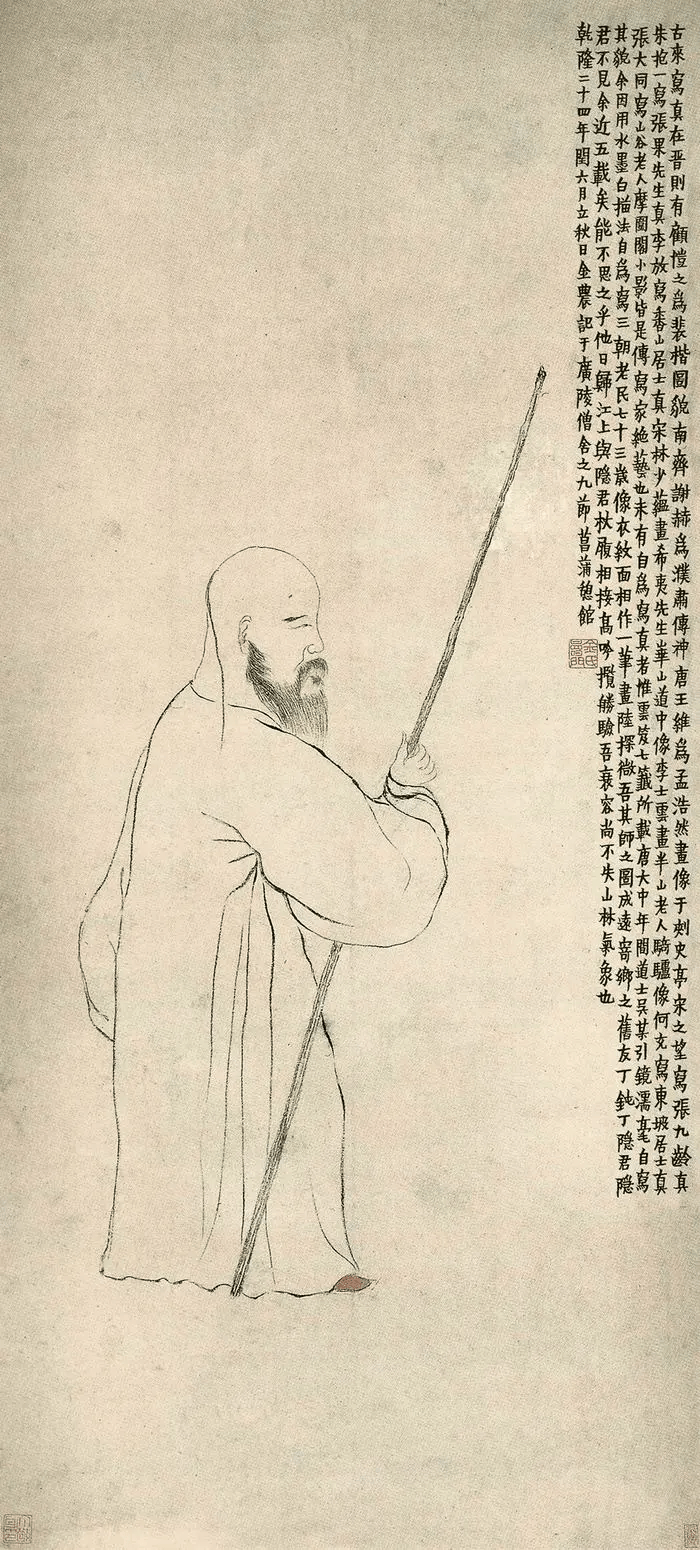 古來寫真在晉則有顧愷之爲裴楷圖貌南齊謝赫爲濮肅傳神唐王維爲孟浩然畫像于刺史亭宋之望寫張九齡真
朱抱一寫張果先生真李放寫香山居士真宋林少蘊畫希夷先生華山道中像李士雲畫半山老人騎驢像何充寫東坡居士真
張大同寫山谷老人摩圍閣小影皆是傳寫家絕藝也未有自爲寫真者惟雲笈七籤所載唐大中年間道士吳某引鏡濡毫自寫
其貌余因用水墨白描法自爲寫三朝老民七十三歲像衣紋面相作一筆畫陸探微吾其師之圖成遠寄鄉之舊友丁鈍丁隱君隱
君不見余近五載矣能不思之乎他日歸江上與隱君杖履相接高吟攬勝驗吾衰容尚不失山林氣象也
乾隆二十四年閏六月立秋日金農記于廣陵僧舍之九節菖蒲憩館
金氏壽門